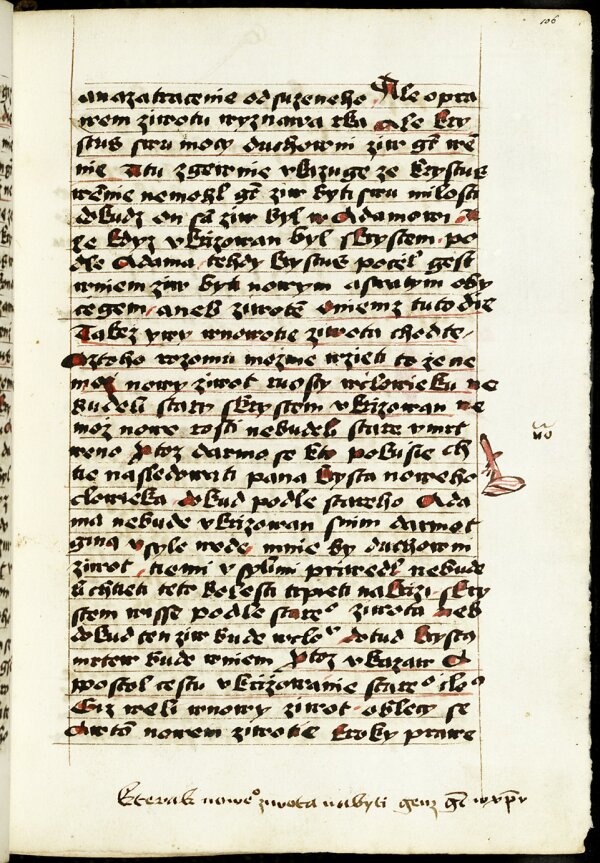 106
anazatracenie odsuzeneho Ale opra
wem ziwotu wyznawa rka Ale kry
stus swu mocy duchowni ziw gt wē
nie A tu zgewnie vkazuge ze krystus
wēnie nemohl gt ziw byti swu milosti
dokudz on sā ziw byl w Adamowi A
ze kdyz vkrizowan byl skrystem po
dle Adama tehdy krystus pocěl gest
wniem ziw byti nowym aswatym oby
cegem aneb ziwotē Oniemz tuto die
Takez y wy wnowotie ziwota chodte
Aztoho rozomu mozme wzieti to ze ne
moz nowy ziwot rosty wclowieku ne
budeli stary skrystem vkrizowan ne
moz nowe rosti nebudeli stare vmrt
weno Protoz darmo se kto pokusie ch
tie nasledowati pana krysta noweho
clowieka dokud podle stareho Ada
ma nebude vkrizowan snim darmot
gina vsyle wede mnie by duchowni
ziwot tiemi vsylimi priwedl nebude
li chtieti teto bolesti trpieti nakrizi skry
stem wisse podle stareº ziwota neb
dokud ten ziw bude wcloº dotud krysta
mrtew bude wniem Protoz vkazaw A
postol cestu vkrizowanie stareº cloº
Giz weli wnowy ziwot oblecy se
Awtō nowem ziwotie kroky prawe
Kterak noweº ziwota nabyti genz gt w xpu